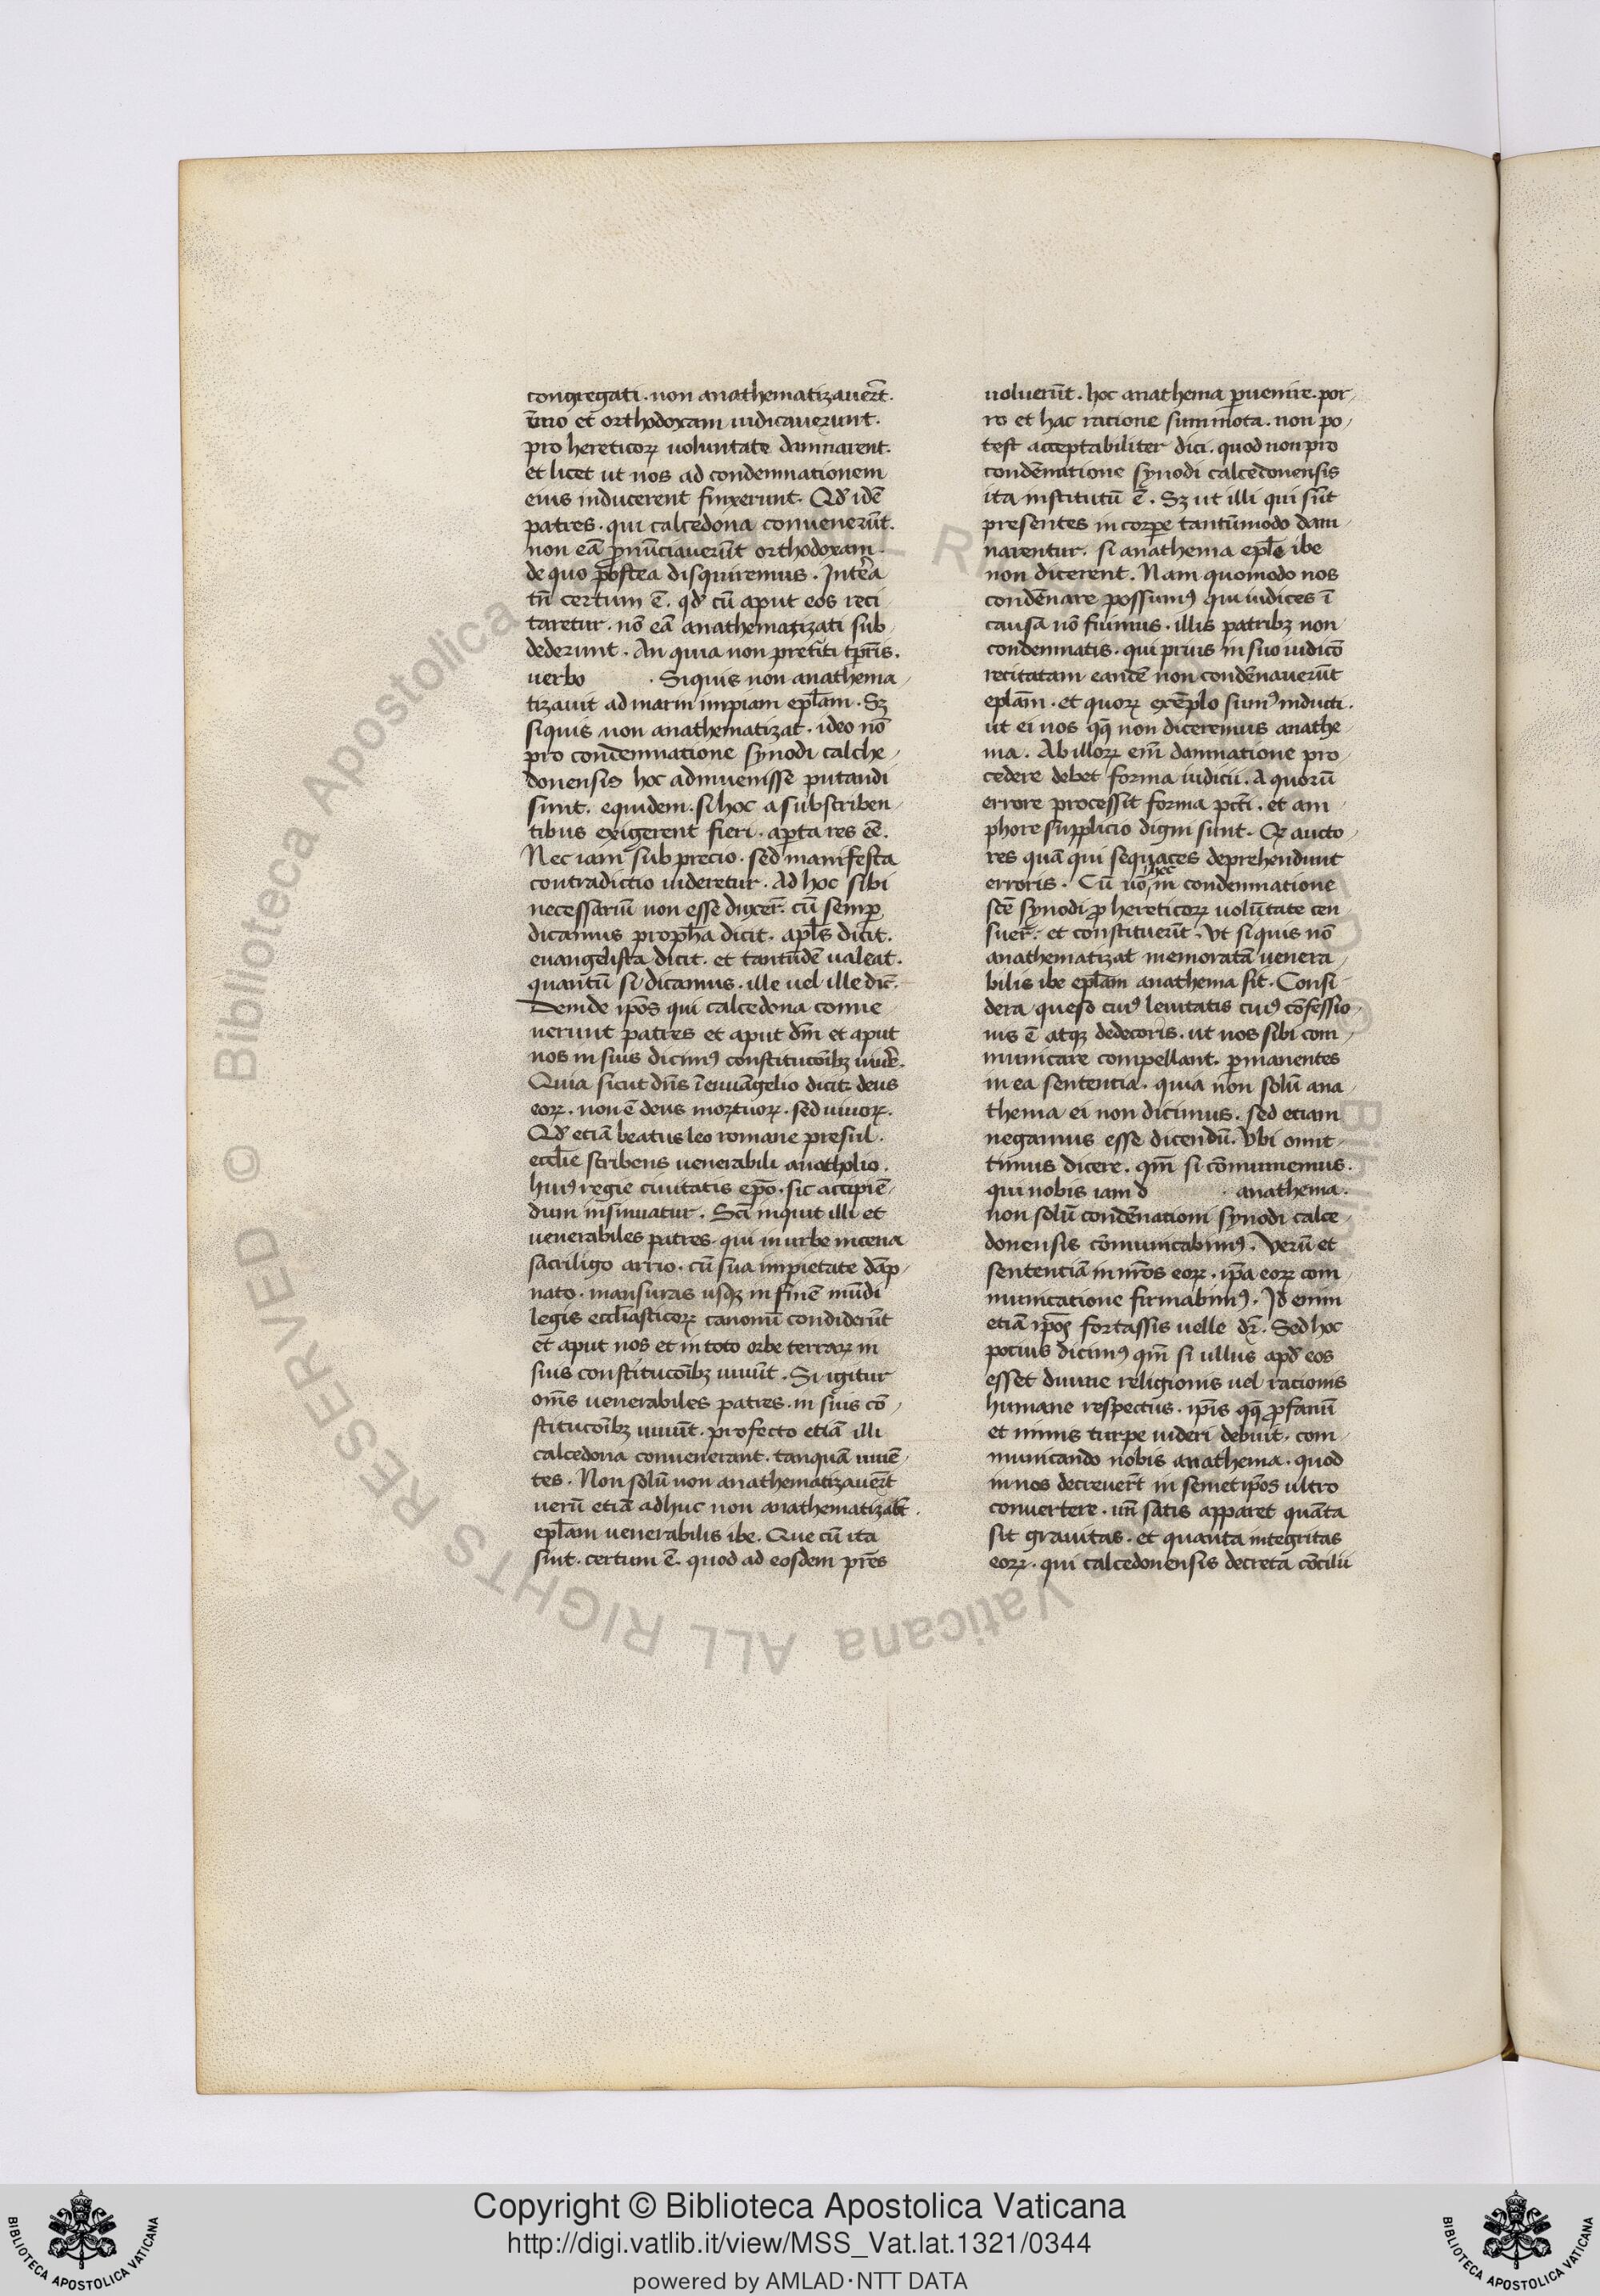 congregati. non anathematizauerũt.
ỹmo et orthodoxam iudicauerunt.
pro hereticoꝝ uoluntate damnarent.
et licet ut nos ad condemnationem
eius inducerent finxerunt. Qd' idẽ
patres. qui calcedona conuenerũt.
non eã ꝓnũciauerũt orthodoxam.
de quo postea disquiremus. Interea
tñ certum ẽ. qd' cũ aput eos reci
taretur. nõ eã anathematizati sub
dederunt. An quia non preteriti tp̃ris.
uerbo . Siquis non anathema
tizauit ad marin impiam epl̃am. Sꝫ
siquis non anathematizat. ideo nõ
pro condemnatione synodi calche
donensis hoc adinuenisse putandi
sunt. equidem. si hoc a subscriben
tibus exigerent fieri. aperta res eẽ.
Nec iam sub precio. sed manifesta
contradictio uideretur. Ad hoc sibi
necessariũ non esse duxer̃. cũ semp̱
dicamus proph̃a dicit. apl̃s dicit.
euangelista dicit. et tantũdẽ ualeat.
quantũ si dicamus. ille uel ille dic̃.
Deinde ip̃os qui calcedona conue
nerunt patres et aput dñm et aput
nos in suis dicimꝰ constitucõibꝫ uiuẽ.
Quia sicut dñs ĩ euuãgelio dicit deus
eoꝝ. non ẽ deus mortuoꝝ. sed uiuoꝝ.
Qd' etiã beatus leo romane presul.
eccl̃ie scribens uenerabili anatholio.
huiꝰ regie ciuitatis ep̃o. sic accipiẽ
dum insinuatur. Sc̃i inquit illi et
uenerabiles patres. qui in urbe nicena
sacriligo arrio. cũ sua impietate dãp
nato. mansuras usqꝫ in finẽ mũdi
legis eccl̃iasticoꝝ canonũ condiderũt
et aput nos et in toto orbe terraꝝ in
suis constitucõibꝫ uiuũt. Si igitur
om̃s uenerabiles patres. in suis cõ
stitucõibꝫ uiuũt. profecto etiã illi
calcedona conuenerant. tanquã uiuẽ
tes. Non solũ non anathematizauerũt
uerũ etiã adhuc non anathematizãt.
epl̃am uenerabilis ibe. Que cũ ita
sint. certum ẽ. quod ad eosdem pr̃es
uoluerũt. hoc anathema ꝑuenire. por
ro et hac ratione summota. non po
test acceptabiliter dici. quod non pro
condẽnatione synodi calcedonensis
ita institutũ ẽ. Sꝫ ut illi qui sũt
presentes in corꝑe tantũmodo dam
narentur. si anathema epl̃e ibe
non dicerent. Nam quomodo nos
condẽnare possumꝰ qui iudices ĩ
causa nõ fuimus. illis patribꝫ non
condemnatis. qui prius in suo iudicõ
recitatam eandẽ non condẽnauerũt
epl̃am. et quoꝝ exẽplo sumꝰ inducti.
ut ei nos qq̃ non diceremus anathe
ma. Ab illoꝝ em̃ damnatione pro
cedere debet forma iudicii. a quorũ
errore processit forma pc̃ti. et am
phore supplicio digni sunt. Qꝫ aucto
res quã qui sequaces deprehendunt
erroris. Cũ uõ hec in condemnatione
sc̃e synodi ꝓ hereticoꝝ uolũtate cen
suer̃. et constituerũt. Vt siquis nõ
anathematizat memoratã uenera
bilis ibe epl̃am anathema sit. Consi
dera queso cuiꝰ leuitatis cuiꝰ cõfessio
nis ẽ atqꝫ dedecoris. ut nos sibi com
municare compellant. ꝑmanentes
in ea sententia. quia non solũ ana
thema ei non dicimus. sed etiam
negamus esse dicendũ. Vbi omit
timus dicere. qm̃ si cõmunicemus.
qui nobis iam d . anathema.
non solũ condẽnationi synodi calce
donensis cõmunicabimꝰ. Verũ et
sententiã in nr̃os eoꝝ. ip̃a eoꝝ com
municatione firmabimꝰ. Id enim
etiã ip̃os fortassis uelle dr̃. Sed hoc
pocius dicimꝰ qm̃ si ullus apd' eos
esset diuine religionis uel racionis
humane respectus. ip̃is qq̃ ꝓfanũ
et nimis turpe uideri debuit. com
municando nobis anathema. quod
in nos decreuerũt in semetip̃os ultro
conuertere. uñ satis apparet quãta
sit grauitas. et quanta integritas
eoꝝ. qui calcedonensis decreta cõcilii
Copyright © Biblioteca Apostolica Vaticana
http://digi.vatlib.it/view/MSS_Vat.lat.1321/0344
powered by AMLAD·NTT DATA